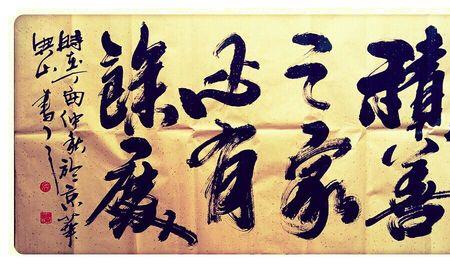 積善
之家
必有
餘慶
時在丁酉仲秋於京華
山書